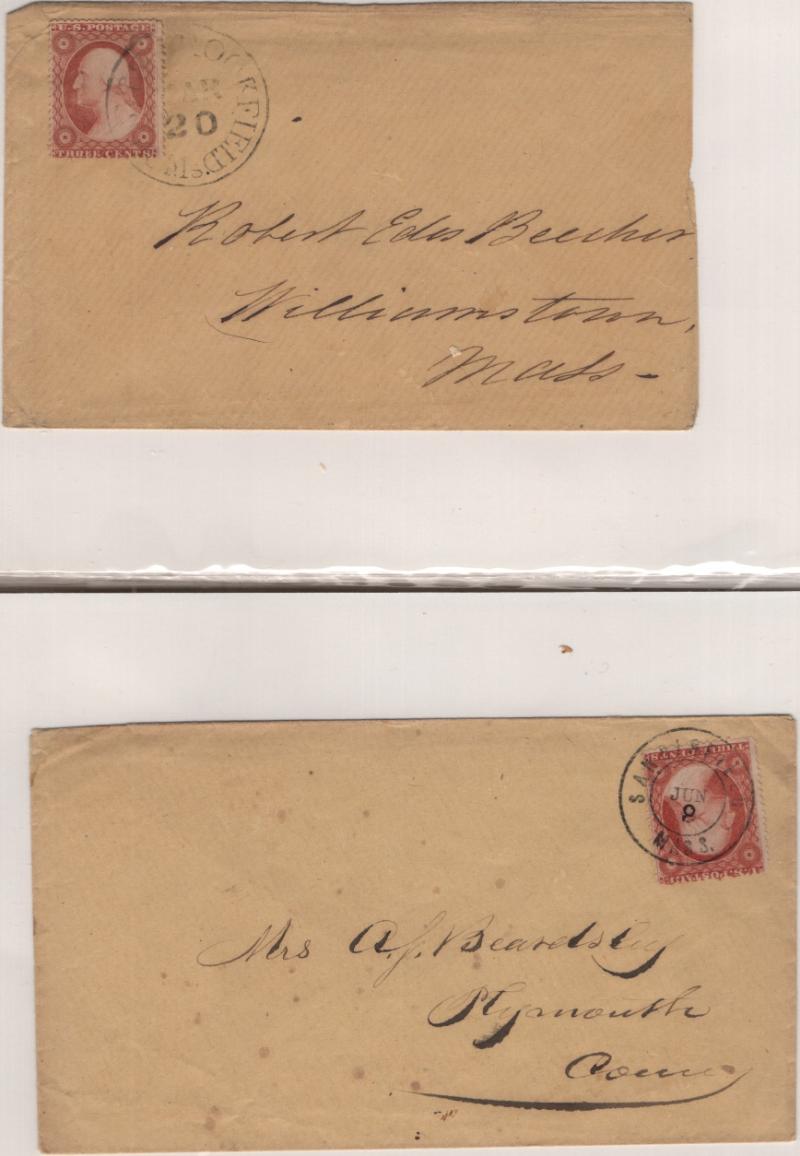 U.S. POSTAGE
THREE CENTS
BROOKFIELD
MAR
20
Robert Edes Beecher
Williamstown,
Mass -
THREE CENTS
U.S. POSTAGE
JUN
8
MASS.
Mrs A. J. Beardsley
Plymouth
Conn